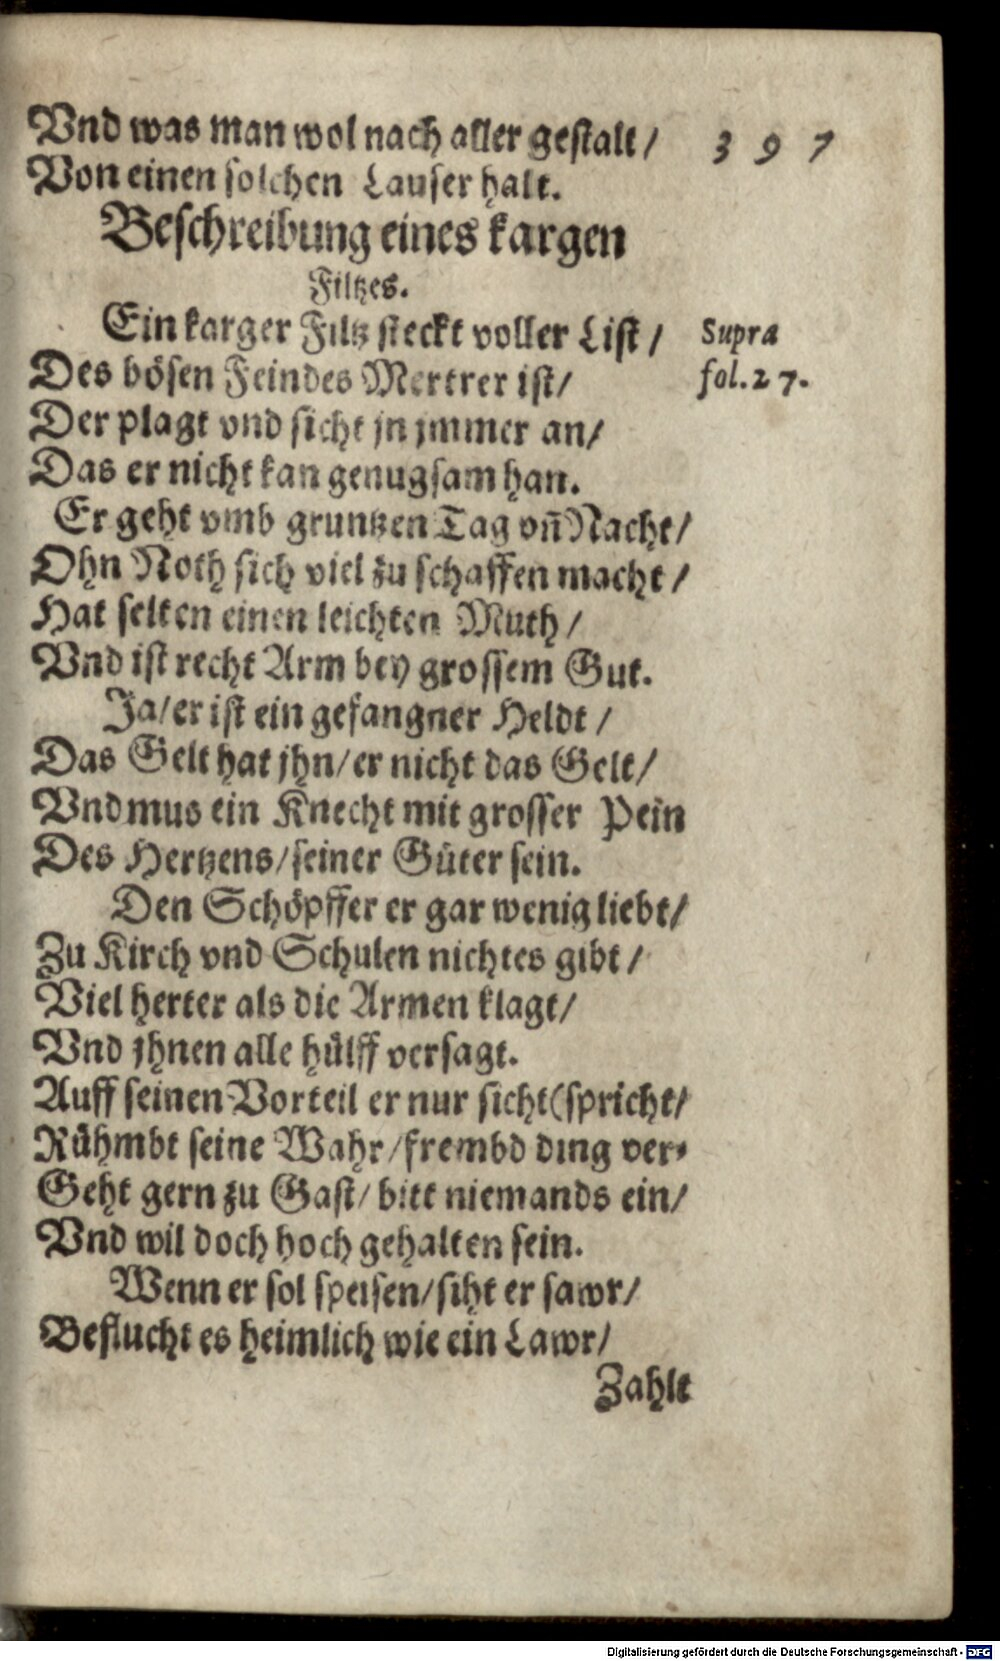 Vnd was man wol nach aller gestalt / 397
Von einen solchen Lauser halt.
Beschreibung eines kargen
Filtzes.
Ein karger Filtz steckt voller List / Supra
Des bösen Feindes Mertrer ist / fol. 27.
Der plagt vnd sicht jn jmmer an /
Das er nicht kan genugsam han.
Er geht vmb gruntzen Tag vn̄ Nacht /
Ohn Noth sich viel zu schaffen macht /
Hat selten einen leichten Muth /
Vnd ist recht Arm bey grossem Gut.
Ja / er ist ein gefangner Heldt /
Das Gelt hat jhn / er nicht das Gelt /
Vnd mus ein Knecht mit grosser Pein
Des Hertzens / seiner Güter sein.
Den Schöpffer er gar wenig liebt /
Zu Kirch vnd Schulen nichtes gibt /
Viel herter als die Armen klagt /
Vnd jhnen alle hülff versagt.
Auff seinen Vorteil er nur sicht (spricht /
Rühmbt seine Wahr / frembd ding ver-
Geht gern zu Gast / bitt niemands ein /
Vnd wil doch hoch gehalten sein.
Wenn er sol speisen / siht er sawr /
Beflucht es heimlich wie ein Lawr /
Zahlt
Digitalisierung gefördert durch die Deutsche Forschungsgemeinschaft - DFG